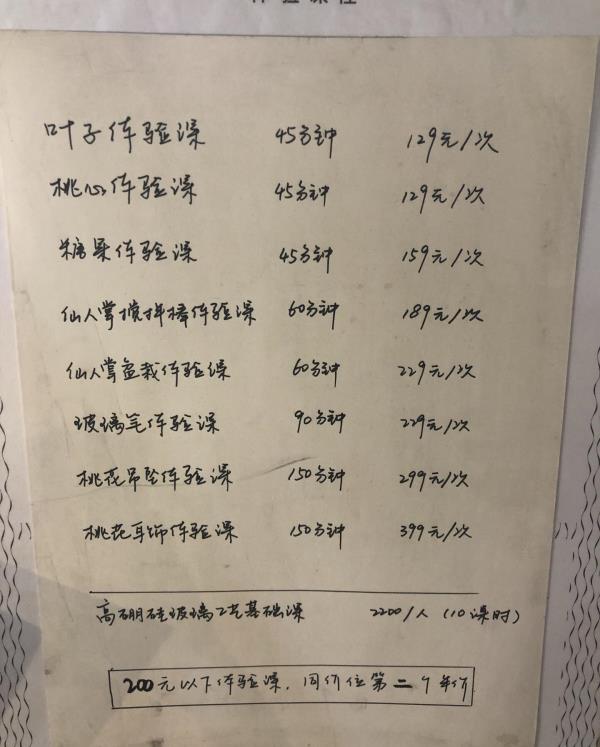 体验课程
叶子体验课 45分钟 129元/次
桃心体验课 45分钟 129元/次
糖果体验课 45分钟 159元/次
仙人掌搅拌棒体验课 60分钟 189元/次
仙人掌盆栽体验课 60分钟 229元/次
玻璃笔体验课 90分钟 229元/次
桃花吊坠体验课 150分钟 299元/次
桃花耳饰体验课 150分钟 399元/次
高硼硅玻璃工艺基础课 2200/人（10课时）
200元以下体验课，同价位第二个半价